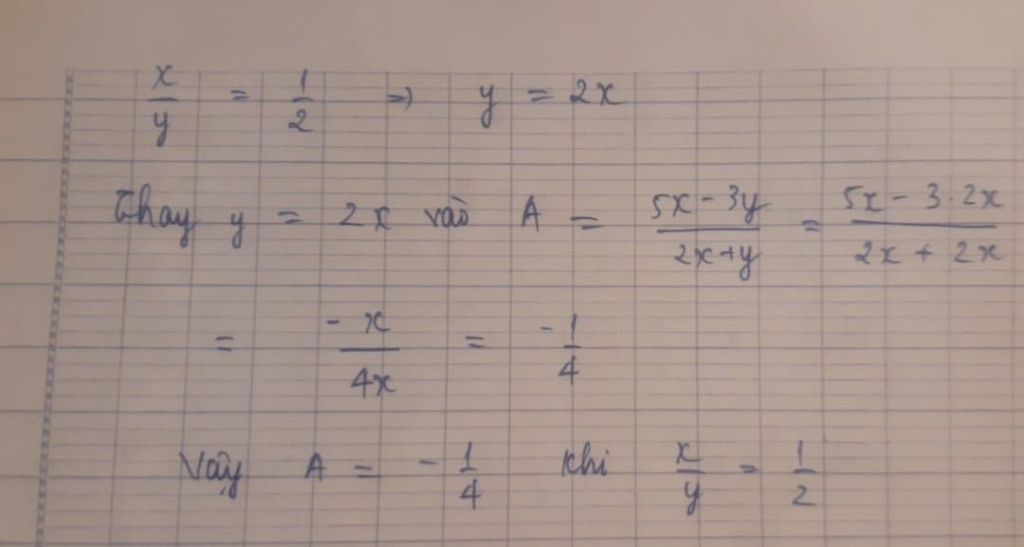 x/y = 1/2 => y = 2x
Thay y = 2x vào A = (5x - 3y)/(2x+y) = (5x - 3.2x)/(2x + 2x)
= -x/4x = -1/4
Vậy A = -1/4 khi x/y = 1/2